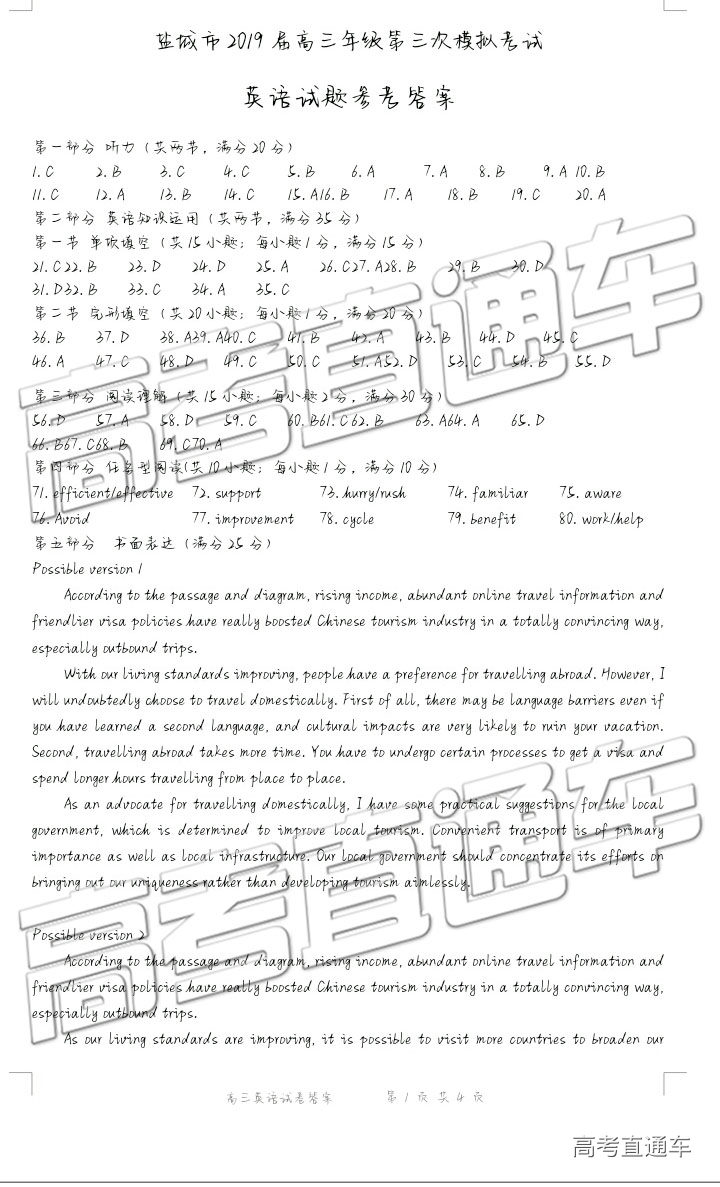 盐城市2019届高三年级第三次模拟考试
英语试题参考答案
第一部分 听力（共两节，满分20分）
1.C 2.B 3.C 4.C 5.B 6.A 7.A 8.B 9.A 10.B
11.C 12.A 13.B 14.C 15.A16.B 17.A 18.B 19.C 20.A
第二部分 英语知识运用（共两节，满分35分）
第一节 单项填空（共15小题；每小题1分，满分15分）
21.C22.B 23.D 24.D 25.A 26.C27.A28.B 29.B 30.D
31.D32.B 33.C 34.A 35.C
第二节 完形填空（共20小题；每小题1分，满分20分）
36.B 37.D 38.A39.A40.C 41.B 42.A 43.B 44.D 45.C
46.A 47.C 48.D 49.C 50.C 51.A52.D 53.C 54.B 55.D
第三部分 阅读理解（共15小题；每小题2分，满分30分）
56.D 57.A 58.D 59.C 60.B61.C62.B 63.A64.A 65.D
66.B67.C68.B 69.C70.A
第四部分 任务型阅读(共10小题；每小题1分，满分10分)
71. efficient/effective 72. support 73. hurry/rush 74. familiar 75. aware
76. Avoid 77. improvement 78. cycle 79. benefit 80. work/help
第五部分 书面表达（满分25分）
Possible version 1
According to the passage and diagram, rising income, abundant online travel information and
friendlier visa policies have really boosted Chinese tourism industry in a totally convincing way,
especially outbound trips.
With our living standards improving, people have a preference for travelling abroad. However, I
will undoubtedly choose to travel domestically. First of all, there may be language barriers even if
you have learned a second language, and cultural impacts are very likely to ruin your vacation.
Second, travelling abroad takes more time. You have to undergo certain processes to get a visa and
spend longer hours travelling from place to place.
As an advocate for travelling domestically, I have some practical suggestions for the local
government, which is determined to improve local tourism. Convenient transport is of primary
importance as well as local infrastructure. Our local government should concentrate its efforts on
bringing out our uniqueness rather than developing tourism aimlessly.
Possible version 2
According to the passage and diagram, rising income, abundant online travel information and
friendlier visa policies have really boosted Chinese tourism industry in a totally convincing way,
especially outbound trips.
As our living standards are improving, it is possible to visit more countries to broaden our
高三英语试卷答案 第1页 共4页
高考直通车
高考直通车
高考直通车